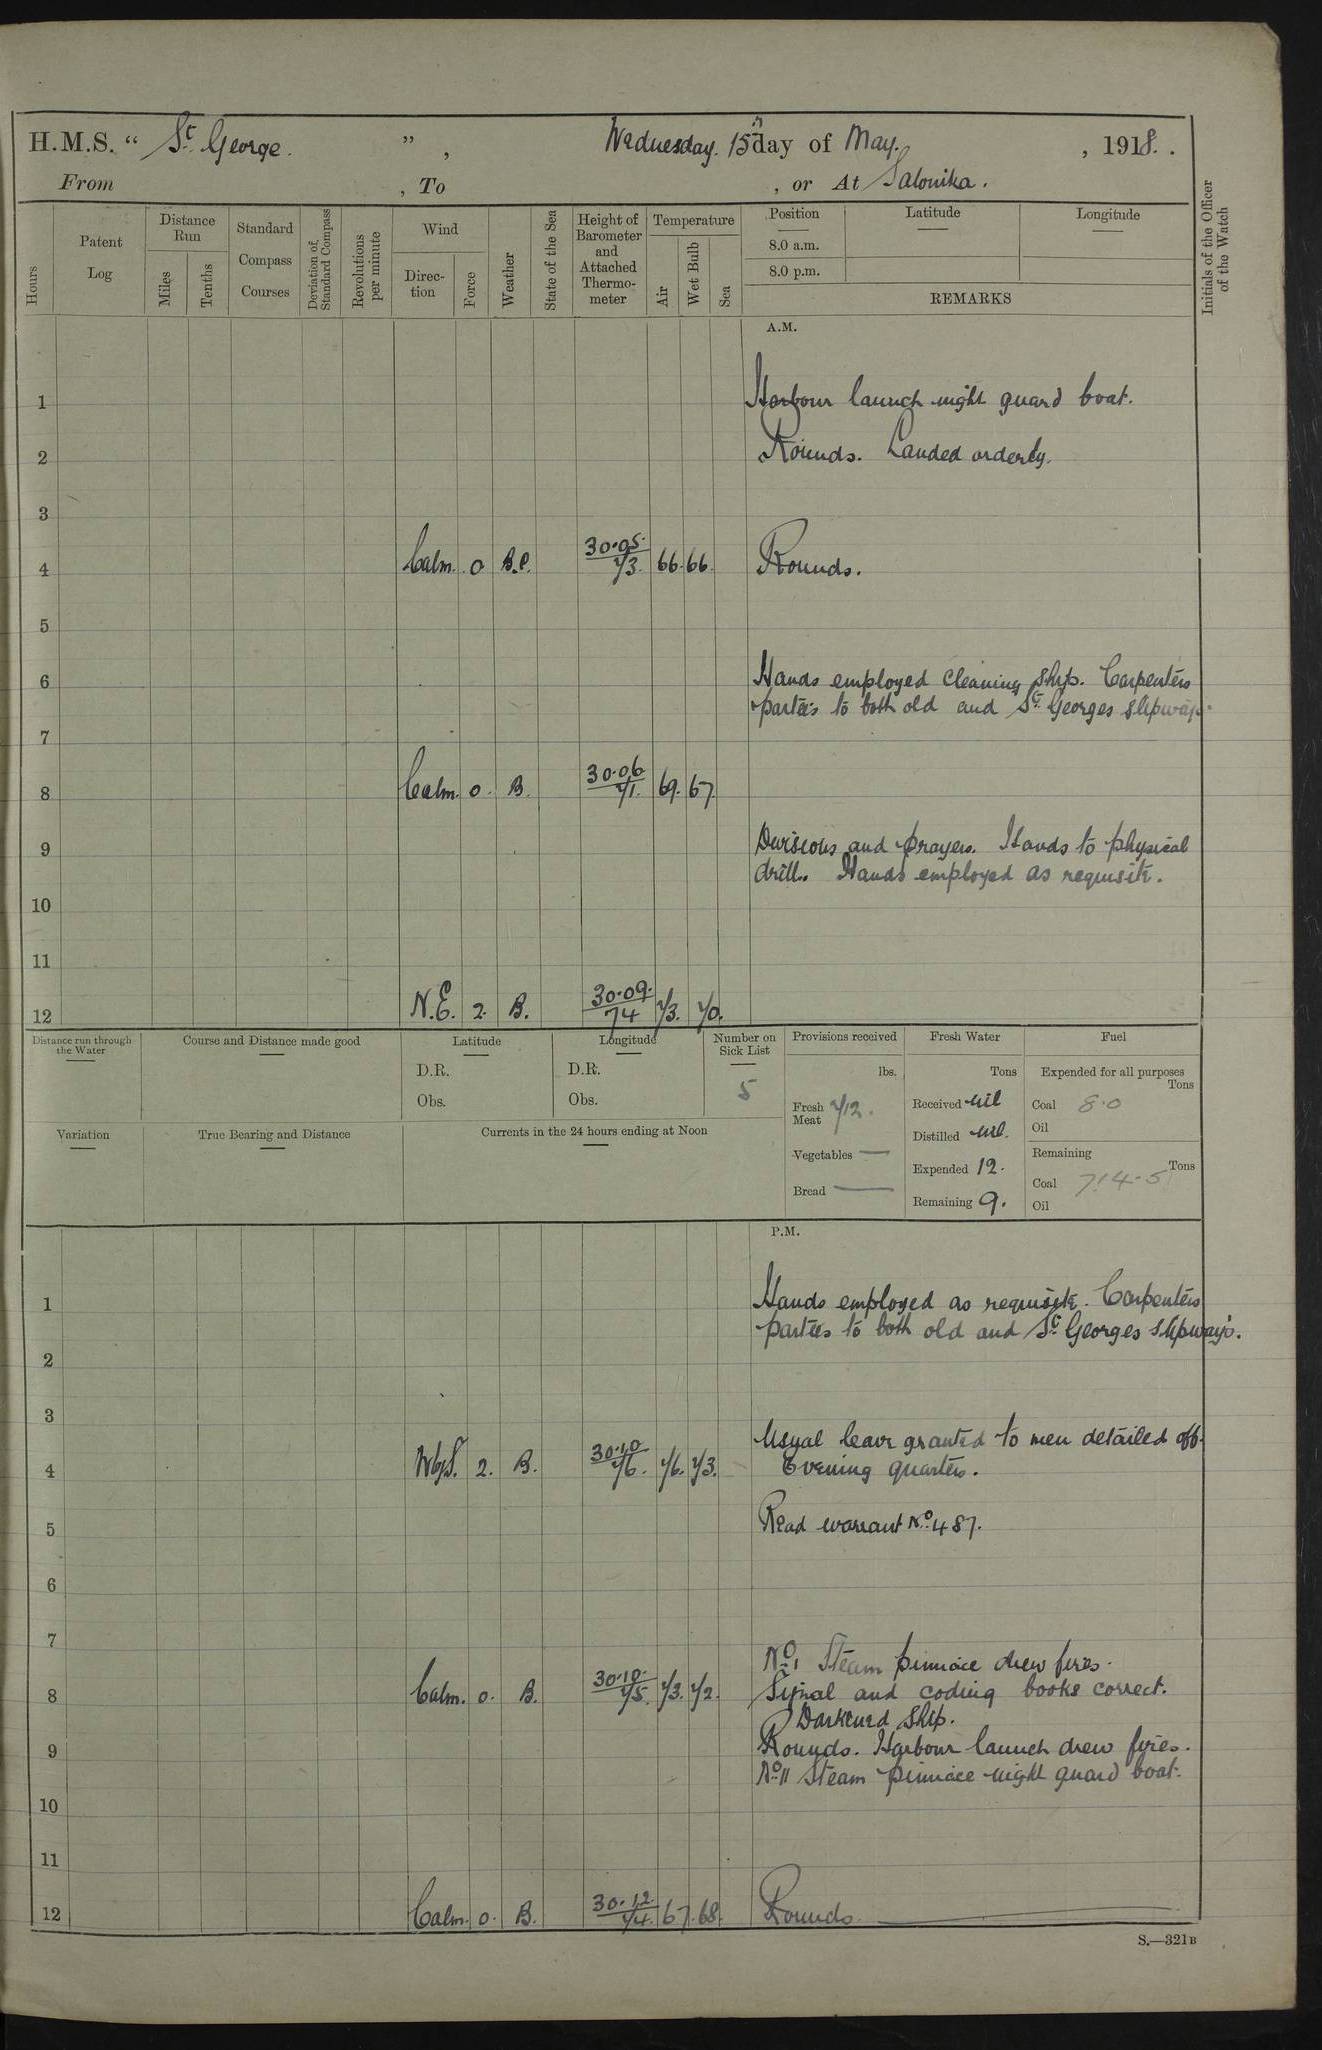 H.M.S. “ St. George. ” , Wednesday. 15th day of May. , 1918. .
From , To , or At Salonika.
Hours
Patent Log
Distance Run
Miles
Tenths
Standard Compass Courses
Deviation of Standard Compass
Revolutions per minute
Wind
Direction
Force
Weather
State of the Sea
Height of Barometer and Attached Thermometer
Temperature
Air
Wet Bulb
Sea
Position
8.0 a.m.
8.0 p.m.
Latitude
Longitude
REMARKS
Initials of the Officer of the Watch
A.M.
1 Harbour launch night guard boat.
2 Rounds. Landed orderly.
3
4 Calm. 0 B.C. 30.05. 73. 66. 66. Rounds.
5
6 Hands employed cleaning ship. Carpenters
parties to both old and St. Georges slipways.
7
8 Calm. 0. B. 30.06 71. 69. 67.
9 Divisions and prayers. Hands to physical
drill. Hands employed as requisite.
10
11
12 N.E. 2. B. 30.09. 74 73. 70.
Distance run through the Water
Course and Distance made good
Latitude
D.R.
Obs.
Longitude
D.R.
Obs.
Number on Sick List
5
Variation
True Bearing and Distance
Currents in the 24 hours ending at Noon
Provisions received
lbs.
Fresh Meat 712.
Vegetables —
Bread —
Fresh Water
Tons
Received nil
Distilled nil.
Expended 12.
Remaining 9.
Fuel
Expended for all purposes
Tons
Coal 8.0
Oil
Remaining
Tons
Coal 714.5
Oil
P.M.
1 Hands employed as requisite. Carpenters
parties to both old and St. Georges slipways.
2
3
Usual leave granted to men detailed off.
4 WbyS. 2. B. 30.10 76. 76. 73. Evening quarters.
5 Read warrant No. 487.
6
7
No. 1 Steam pinnace drew fires.
8 Calm. 0. B. 30.10. 75. 73. 72. Signal and coding books correct.
Darkened ship.
9 Rounds. Harbour launch drew fires.
No. 11 Steam pinnace night guard boat.
10
11
12 Calm. 0. B. 30.12. 74. 67. 68. Rounds.
S.—321B